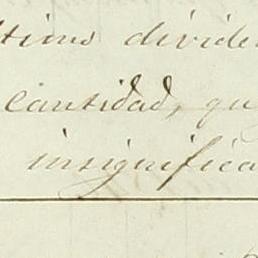 ltimo divide
cantidad, qu
insignifica